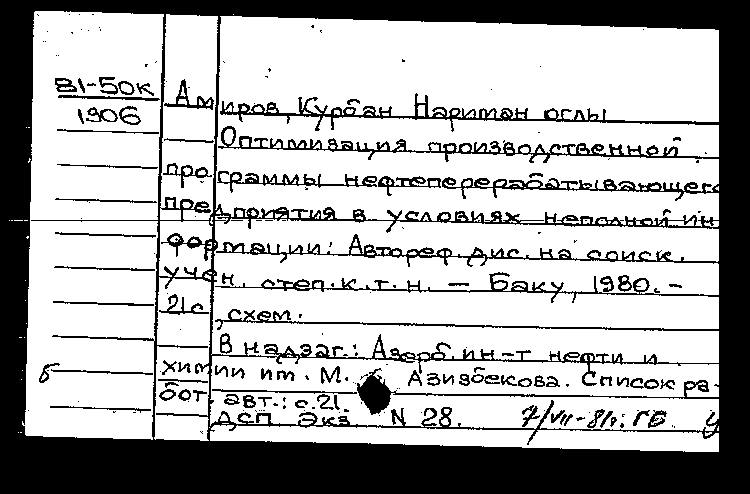 81-50к
1906
Амиров, Курбан Нариман оглы
Оптимизация производственной
программы нефтеперерабатывающего
предприятия в условиях неполной ин
формации: Автореф. дис. на соиск.
учен. степ. к.т.н. – Баку, 1980. –
21с, схем.
В надзаг.: Азерб. ин-т нефти и
химии им. М. Азизбекова. Список ра-
бот. авт.: с.21.
ДСП Экз N 28. 7/VII-81г. ГБ
б